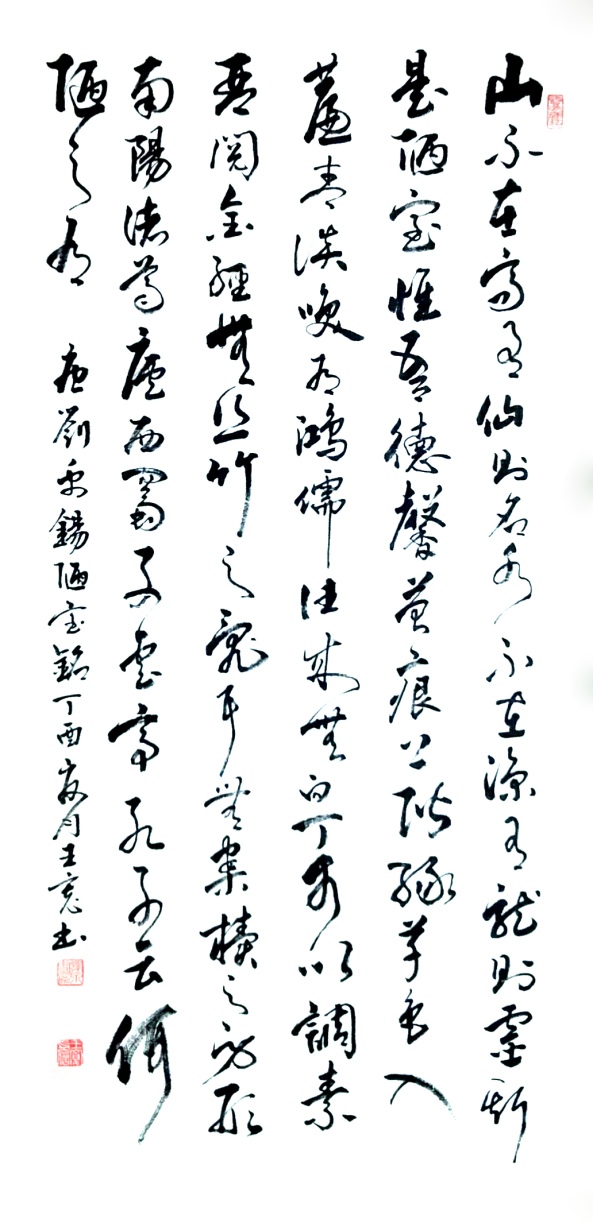 山不在高有仙則名水不在深有龍則靈斯
是陋室惟吾德馨苔痕上階綠草色入
簾青談笑有鴻儒往來無白丁可以調素
琴閱金經無絲竹之亂耳無案牘之勞形
南陽諸葛廬西蜀子雲亭孔子云何
陋之有 唐劉禹錫陋室銘丁酉夏月王书